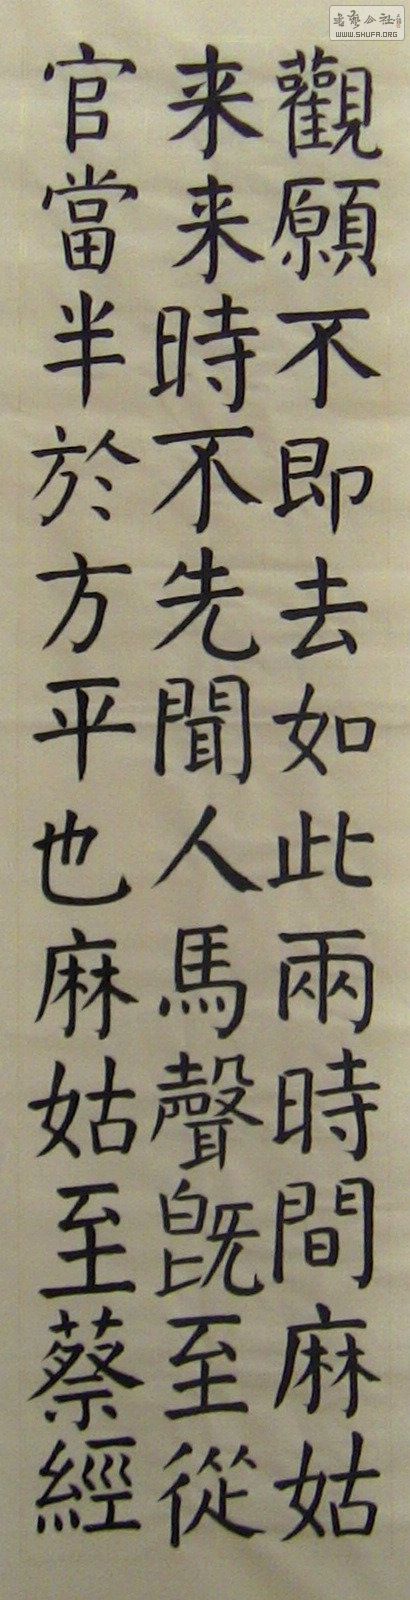 觀願不即去如此兩時間麻姑
来来時不先聞人馬聲旣至從
官當半於方平也麻姑至蔡經
书艺公社
WWW.SHUFA.ORG